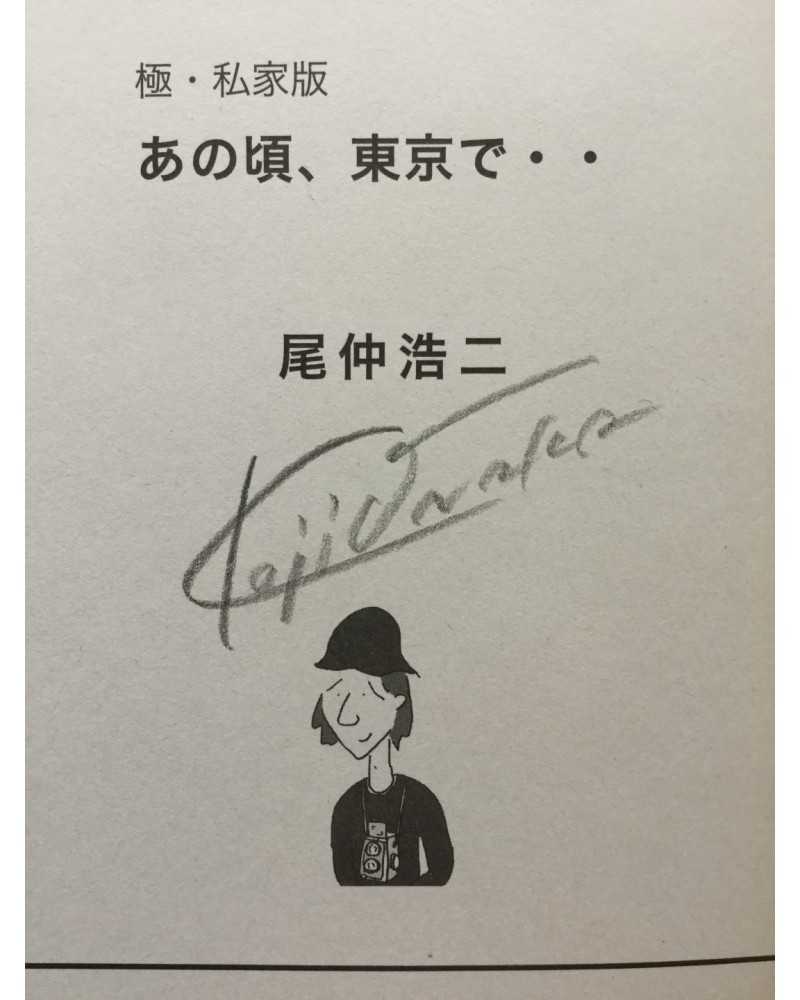 極・私家版
あの頃、東京で・・
尾仲浩二
Koji Onaka